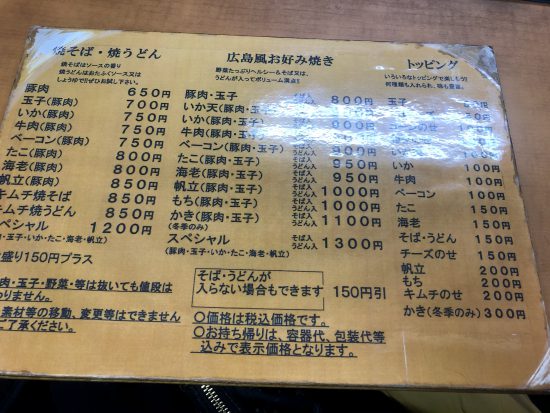 焼そば・焼うどん
焼そばはソースの香り
焼うどんはおたふくソース又は
しょうゆで!!ぜひお試し下さい。
豚肉 650円
玉子(豚肉) 700円
いか(豚肉) 750円
牛肉(豚肉) 750円
ベーコン(豚肉) 750円
たこ(豚肉) 800円
海老(豚肉) 800円
帆立(豚肉) 850円
キムチ焼そば 850円
キムチ焼うどん 850円
スペシャル 1200円
肉・玉子・いか・たこ・海老・帆立)
盛り150円プラス
肉・玉子・野菜・等は抜いても値段は
わりません。
素材等の移動、変更等はできません
了承ください。
広島風お好み焼き
野菜たっぷりヘルシー&そば又は、
うどんが入ってボリューム満点!!
豚肉・玉子 800円
いか天(豚肉・玉子)
いか(豚肉・玉子)
牛肉(豚肉・玉子)
ベーコン(豚肉・玉子)
たこ(豚肉・玉子) そば入 うどん入 950円
海老(豚肉・玉子) そば入 うどん入 950円
帆立(豚肉・玉子) そば入 うどん入 1000円
もち(豚肉・玉子) そば入 うどん入 1000円
かき(豚肉・玉子) そば入 うどん入 1100円
(冬季のみ)
スペシャル そば入 うどん入 1300円
(豚肉・玉子・いか・たこ・海老・帆立)
そば・うどんが
入らない場合もできます 150円引
〇価格は税込価格です。
〇お持ち帰りは、容器代、包装代等
込みで表示価格となります。
トッピング
いろいろなトッピングで楽しもう!!
何種類も入れられ、味も豊富。
玉子
いか 100円
牛肉 100円
ベーコン 100円
たこ 150円
海老 150円
そば・うどん 150円
チーズのせ 150円
帆立 200円
もち 200円
キムチのせ 200円
かき(冬季のみ) 300円